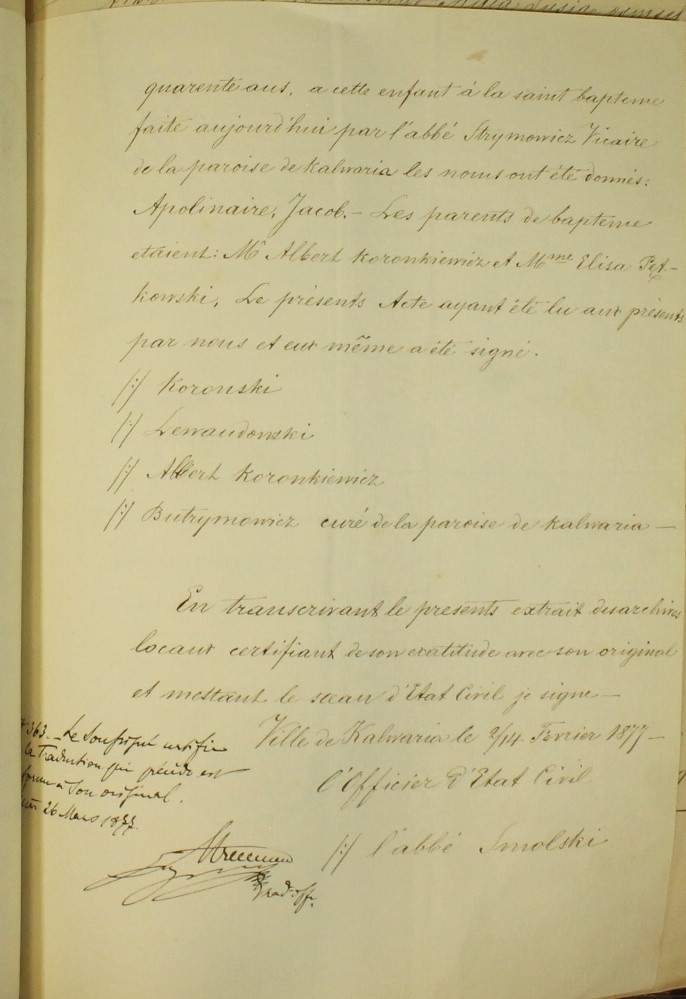 quarente ans, a cette enfant á la saint bapteme
faite aujourd'hui par l'abbé Strymowicz Vicaire
de la paroise de Kalwaria les noms ont été donnés:
Apolinaire, Jacob.- Les parents de bapteme
etaient: Mr Albert Koronkiewicz et Mme Elisa Pet-
kowski, Le présents Acte ayant été lu aux présents
par nous et eux même a été signé.
/:/ Koronski
/:/ Lewandowski
/:/ Albert Koronkiewicz
/:/ Butrymowicz curé de la paroise de Kalwaria —
En transcrivant le presents extrait des archives
locaux certifiant de son exatitude avec son original
et mettant le sceau d'Etat Civil je signe —
Ville de Kalwaria le 2/14 Fevrier 1877 —
l'Officier d'Etat Civil
/:/ l'abbé Smolski
363. - Le Soussigné certifie
la Traduction qui précède est
à son original.
26 Mars 1877.